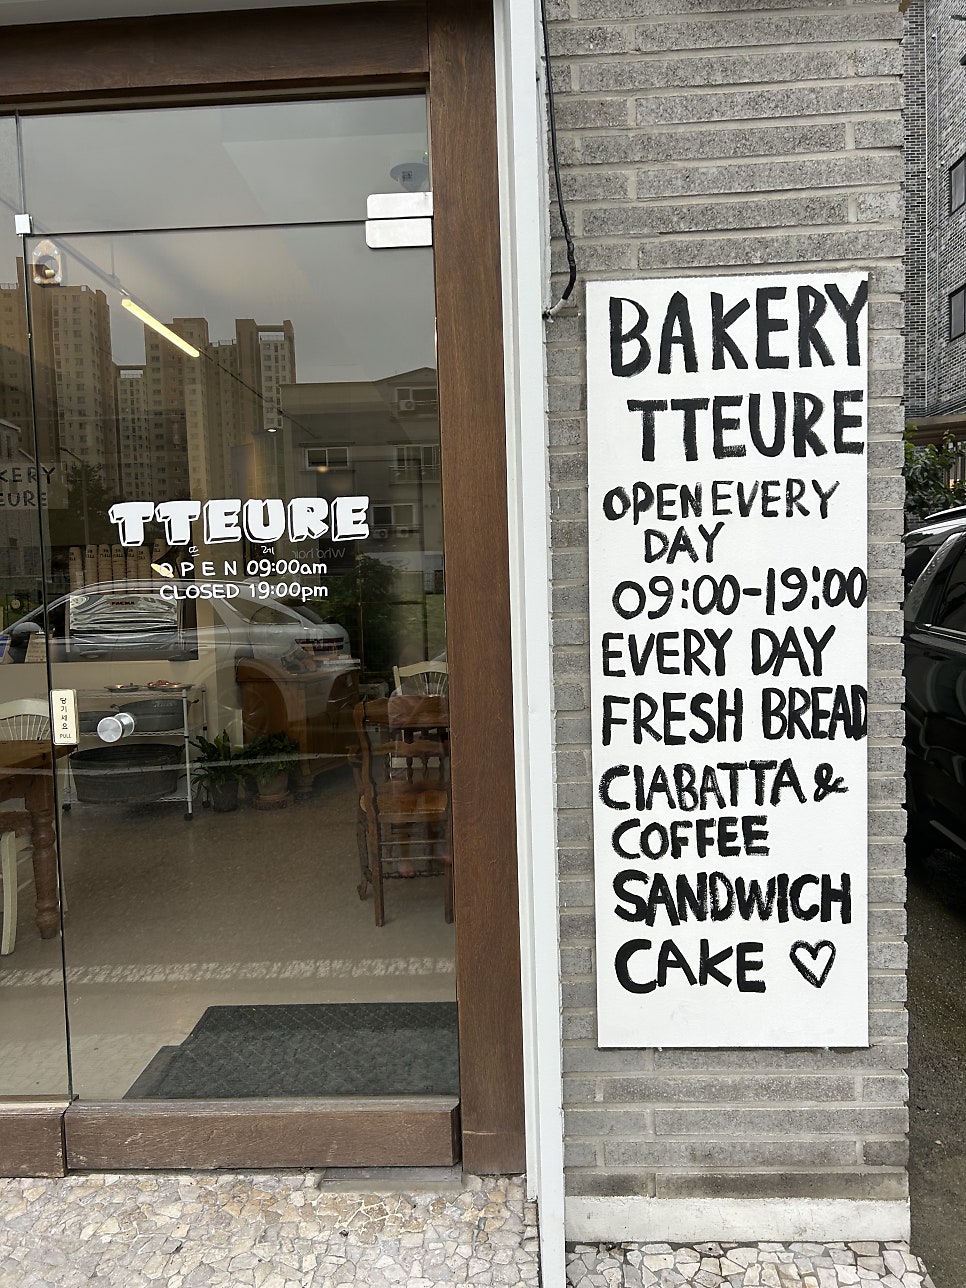 TTEURE
뜨 레
OPEN 09:00am
CLOSED 19:00pm
당기세요
PULL
BAKERY
TTEURE
OPEN EVERY
DAY
09:00-19:00
EVERY DAY
FRESH BREAD
CIABATTA &
COFFEE
SANDWICH
CAKE ♡
KERY
EURE
Who hair